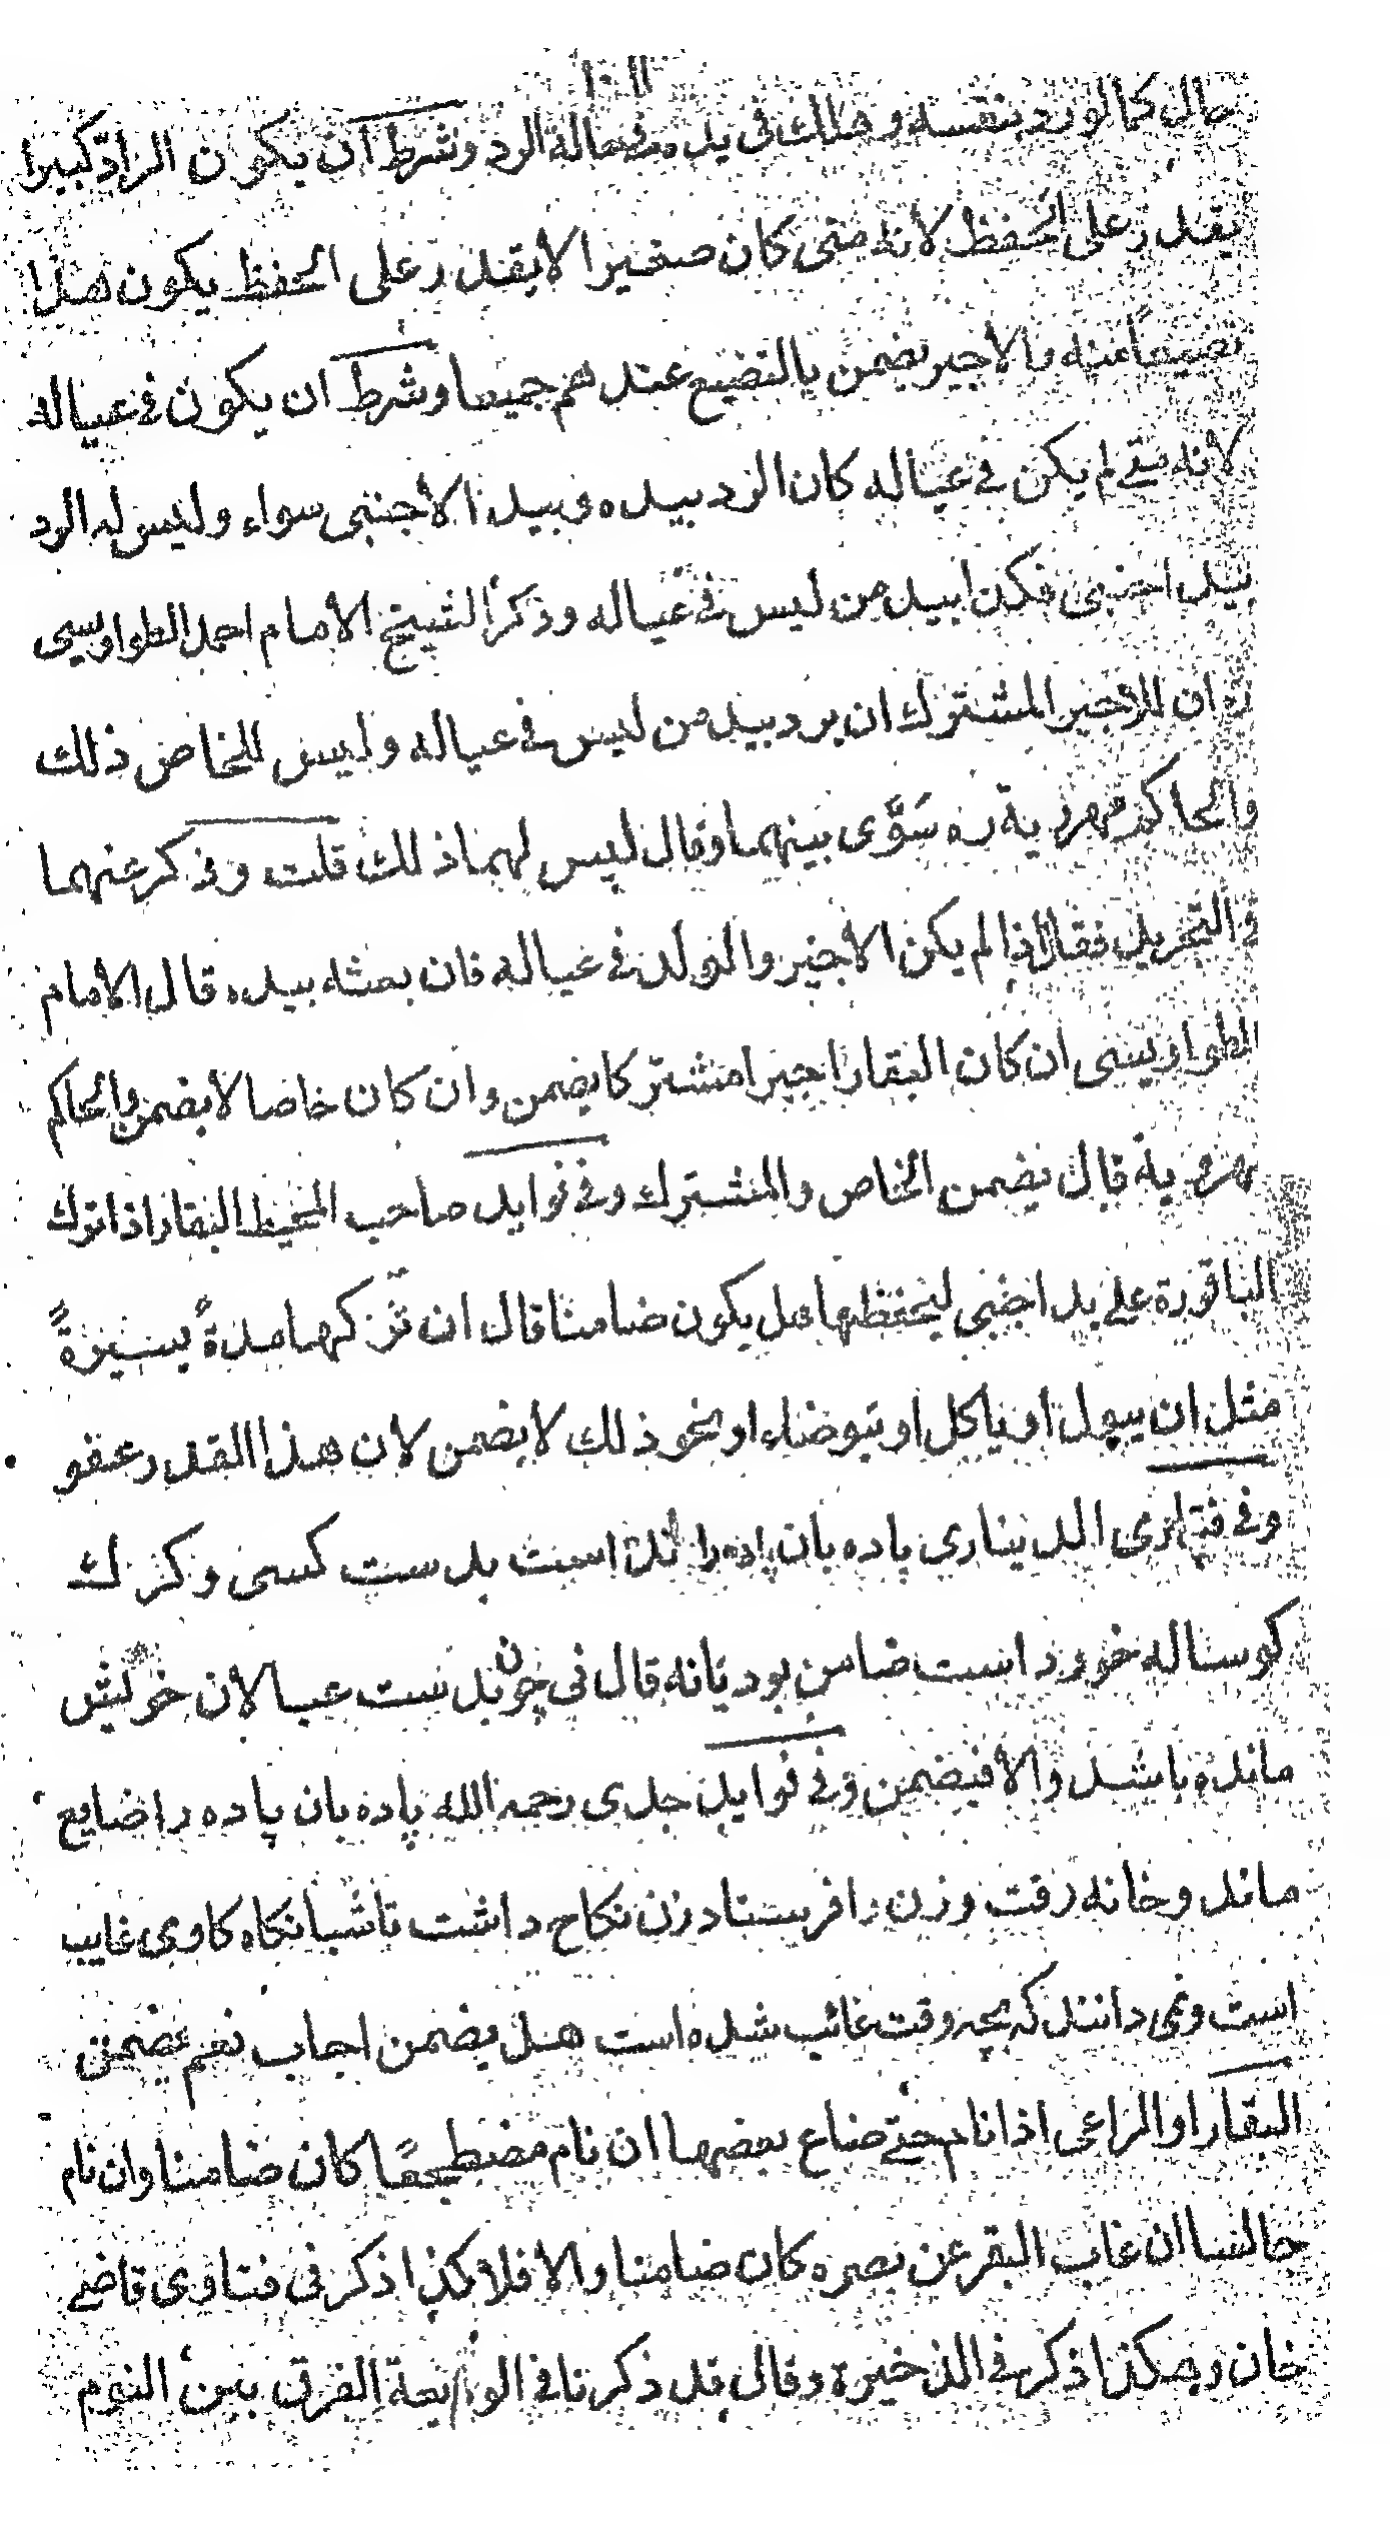 حال كما لو رد بنفسه وهلك فى يده فى حالة الرد وشرط ان يكون الراد كبيرا
يقدر على الحفظ لانه متى كان صغيرا لا يقدر على الحفظ يكون هذا
تضييعا منه والاجير يضمن بالتضييع عندهم جميعا وشرط ان يكون فى عياله
لانه متى لم يكن فى عياله كان الرد بيده وبيد الاجنبى سواء وليس له الرد
بيد اجنبى فكذا بيد من ليس فى عياله وذكر الشيخ الامام احمد الطواويسى
ره ان للاجير المشترك ان يرد بيد من ليس فى عياله وليس للخاص ذلك
والحاكم مهروية ره سوَّى بينهما وقال ليس لهما ذلك قلت وذكر عنهما
فى التجريد فقال اذا لم يكن الاجير والولد فى عياله فان بعثه بيده قال الامام
الطواويسى ان كان البقار اجيرا مشتركا يضمن وان كان خاصا لا يضمن والحاكم
مهروية قال يضمن الخاص والمشترك وفى فوايد صاحب المحيط البقار اذا ترك
الباقورة على يد اجنبى ليحفظها هل يكون ضامنا قال ان تركها مدةً يسيرةً
مثل ان يبول او ياكل او يتوضاء او نحو ذلك لا يضمن لان هذا القدر عفو
وفى فتاوى الدينارى پاده بان پاده را است بدست كسى وكرك
كوساله خورد است ضامن بود يانه قال نى چون بدست عيالان خويش
مانده باشد والا فيضمن وفى فوايد جدى رحمه الله پاده بان پاده را ضايع
ماند وخانه رفت وزن را فرستاد زن نكاح داشت تا شبانكاه كاوى غايب
است ونمى دانند كه بچه وقت غائب شده است هل يضمن اجاب نعم يضمن
البقار او الراعى اذا نام حتى ضاع بعضها ان نام مضطجعًا كان ضامنا وان نام
جالسا ان غاب البقر عن بصره كان ضامنا والا فلا كذا ذكر فى فتاوى قاضى
خان وهكذا ذكر فى الذخيرة وقال قد ذكرنا فى الوديعة الفرق بين النوم